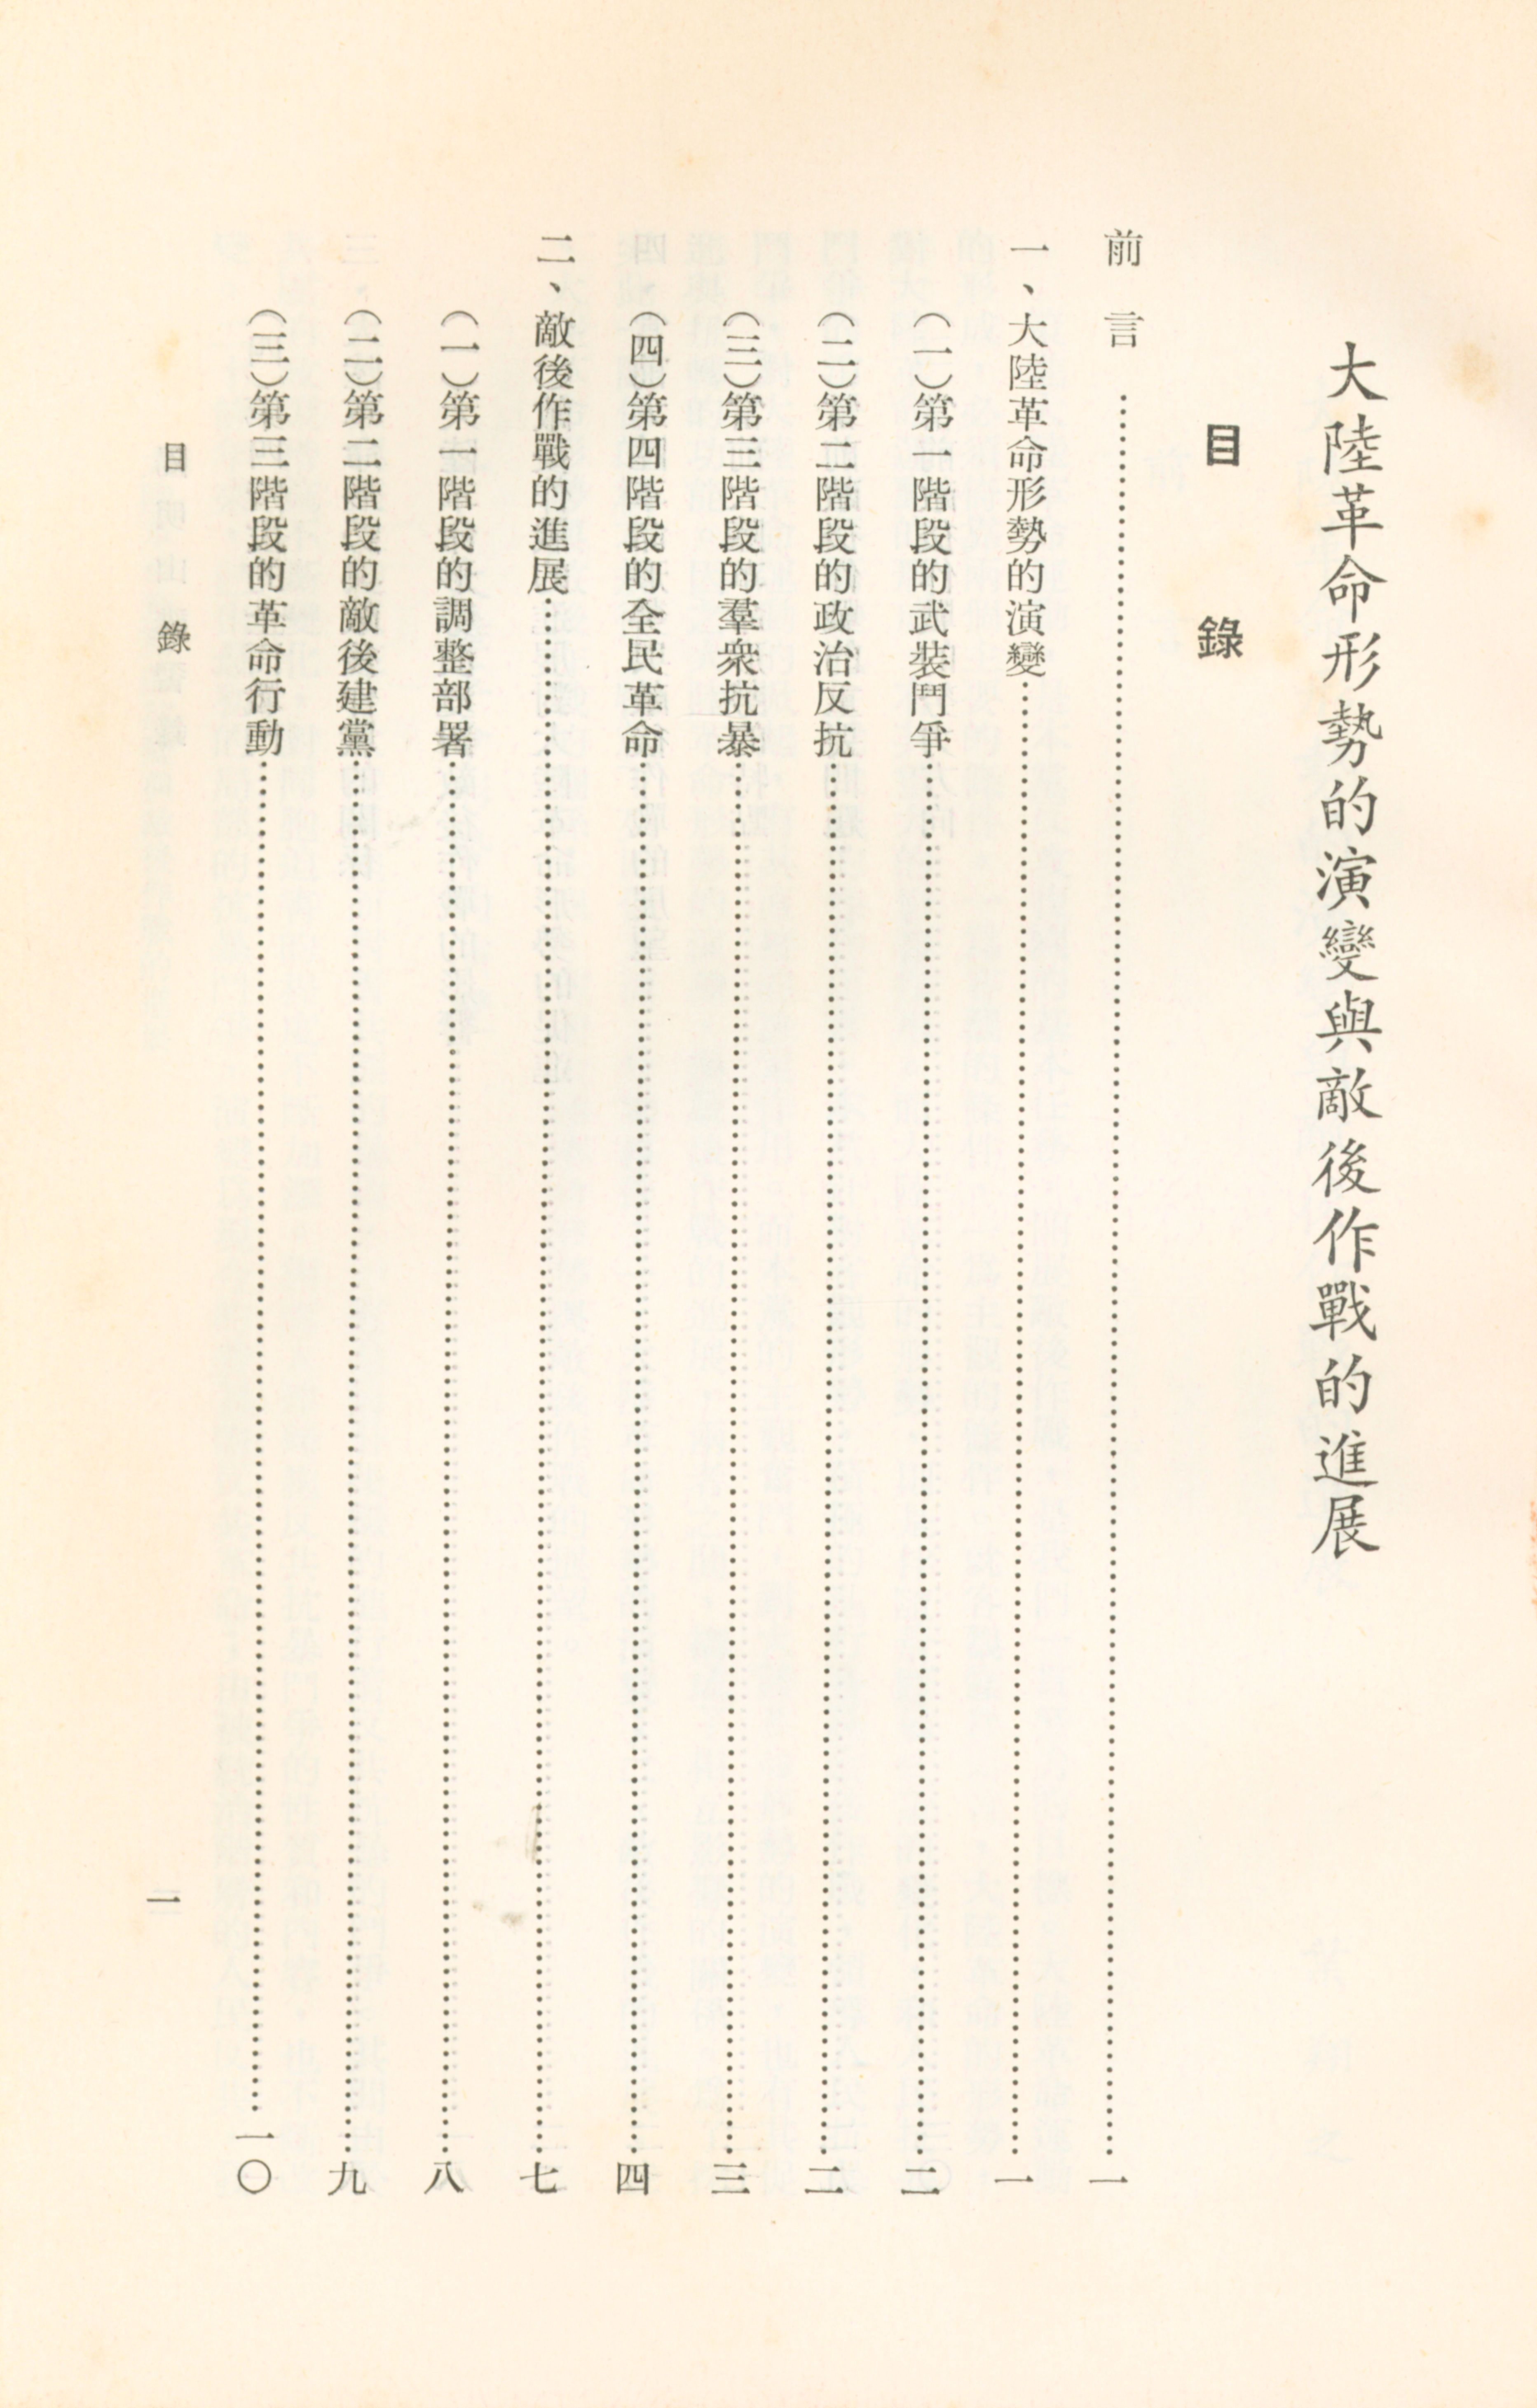 大陸革命形勢的演變與敵後作戰的進展
目錄
前言……一
一、大陸革命形勢的演變……一
（一）第一階段的武裝鬥爭……二
（二）第二階段的政治反抗……二
（三）第三階段的羣衆抗暴……三
（四）第四階段的全民革命……四
二、敵後作戰的進展……七
（一）第一階段的調整部署……八
（二）第二階段的敵後建黨……九
（三）第三階段的革命行動……一〇
目錄
一